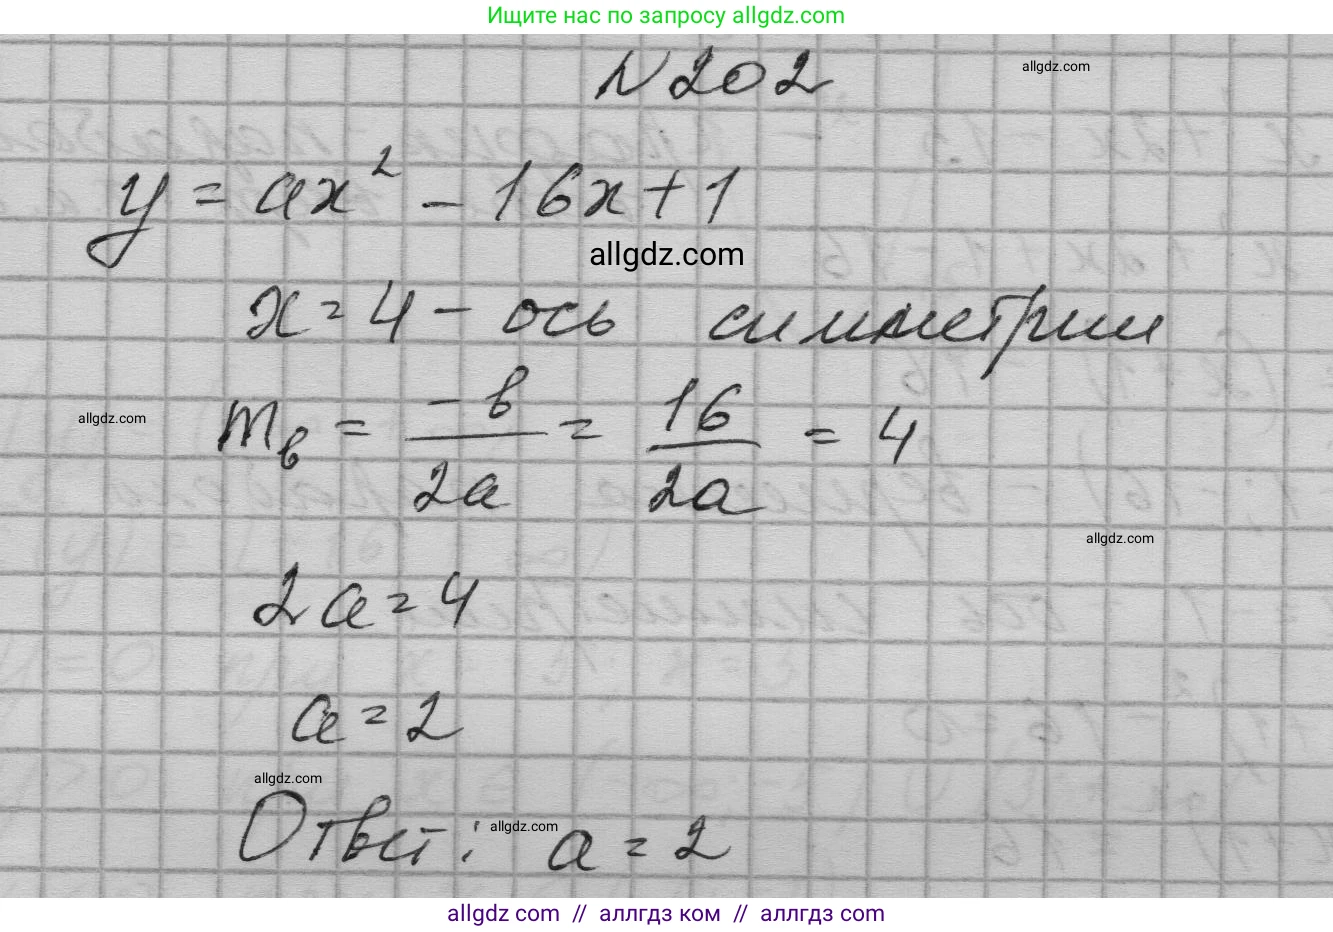 Ищите нас по запросу allgdz.com
N 202
allgdz.com
y = ax² - 16x + 1
allgdz.com
x = 4 - ось симметрии
allgdz.com
m_в = -b/2a = 16/2a = 4
allgdz.com
2a = 4
a = 2
allgdz.com
Ответ: a = 2
allgdz.com
allgdz com // аллгдз ком // аллгдз com